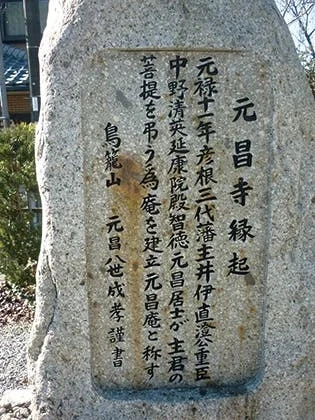 元昌寺縁起
元禄十一年彦根三代藩主井伊直澄公重臣
中野清英延康院殿智徳元昌居士が主君の
菩提を弔う為庵を建立元昌庵と称す
鳥籠山 元昌八世成孝謹書